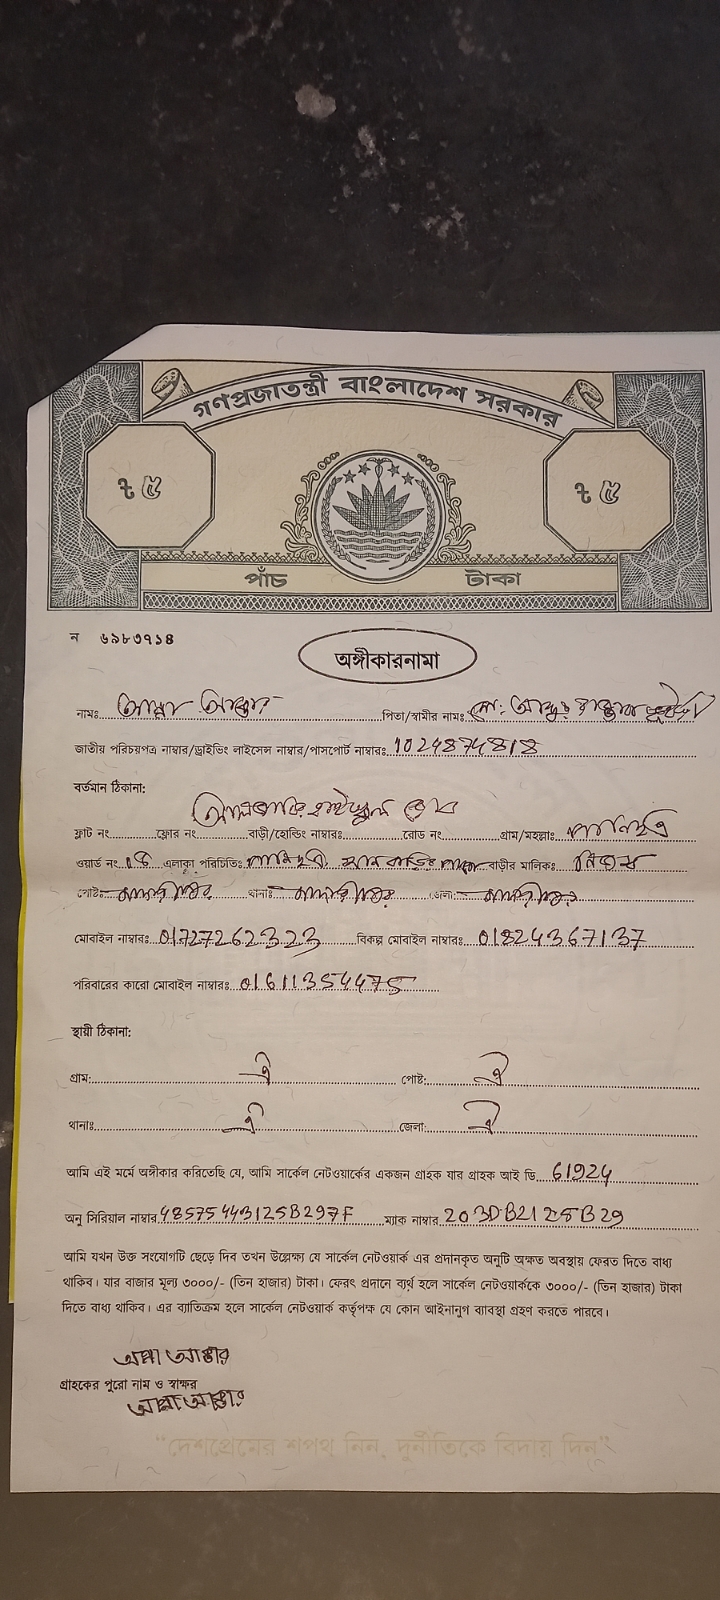 গণপ্রজাতন্ত্রী বাংলাদেশ সরকার
৳ ৫ ৳ ৫
পাঁচ টাকা
ন ৬৯৮৩৭১৪
অঙ্গীকারনামা
নামঃ আক্তার পিতা/স্বামীর নামঃ মো: আব্দুর
জাতীয় পরিচয়পত্র নাম্বার/ড্রাইভিং লাইসেন্স নাম্বার/পাসপোর্ট নাম্বারঃ 1024874818
বর্তমান ঠিকানা:
ফ্লাট নং ফ্লোর নং বাড়ী/হোল্ডিং নাম্বারঃ রোড নং গ্রাম/মহল্লাঃ
ওয়ার্ড নং এলাকা পরিচিতিঃ বাড়ীর মালিকঃ
পোষ্টঃ থানাঃ জেলা:
মোবাইল নাম্বারঃ 01727262323 বিকল্প মোবাইল নাম্বারঃ 01824367137
পরিবারের কারো মোবাইল নাম্বারঃ 01611354475
স্থায়ী ঠিকানা:
গ্রাম: ঐ পোষ্ট: ঐ
থানাঃ ঐ জেলা: ঐ
আমি এই মর্মে অঙ্গীকার করিতেছি যে, আমি সার্কেল নেটওয়ার্কের একজন গ্রাহক যার গ্রাহক আই ডি 61924
অনু সিরিয়াল নাম্বার 48575443125B297F ম্যাক নাম্বার 203DB2125B29
আমি যখন উক্ত সংযোগটি ছেড়ে দিব তখন উল্লেক্ষ্য যে সার্কেল নেটওয়ার্ক এর প্রদানকৃত অনুটি অক্ষত অবস্থায় ফেরত দিতে বাধ্য
থাকিব। যার বাজার মূল্য ৩০০০/- (তিন হাজার) টাকা। ফেরৎ প্রদানে ব্যর্থ হলে সার্কেল নেটওয়ার্ককে ৩০০০/- (তিন হাজার) টাকা
দিতে বাধ্য থাকিব। এর ব্যতিক্রম হলে সার্কেল নেটওয়ার্ক কর্তৃপক্ষ যে কোন আইনানুগ ব্যাবস্থা গ্রহণ করতে পারবে।
আক্তার
গ্রাহকের পুরো নাম ও স্বাক্ষর
আক্তার
"দেশপ্রেমের শপথ নিন, দুর্নীতিকে বিদায় দিন"